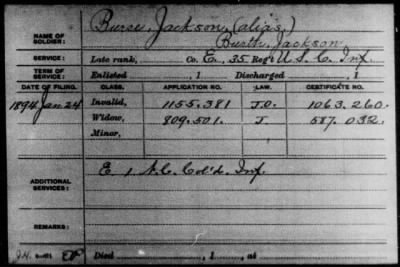 Burse, Jackson, (alias,)
NAME OF SOLDIER: Burth, Jackson
SERVICE: Late rank, Co. E, 35 Reg't U.S.C. Inf.
TERM OF SERVICE: Enlisted , 1 Discharged , 1
DATE OF FILING. CLASS. APPLICATION NO. LAW. CERTIFICATE NO.
1894 Jan 24 Invalid, 1155.381 1063.260.
Widow, 809.501. 587.032.
Minor,
ADDITIONAL SERVICES: E 1 N.C. Col'd. Inf.
REMARKS:
Died , 1 , at